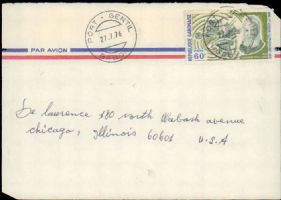 PORT-GENTIL
27.1.76
GABON
REPUBLIQUE GABONAISE
60F
PAR AVION
De Lawrence 180 north Wabash avenue
chicago, Illinois 60601 U.S.A